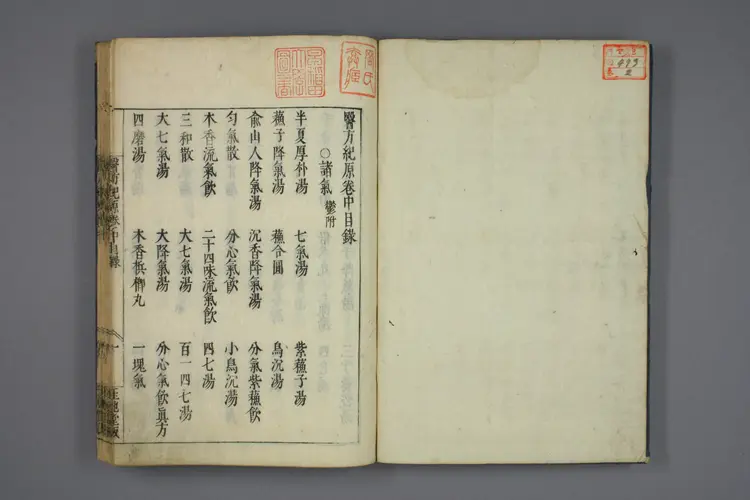 493
2
醫方紀原卷中目錄
○諸氣 鬱附
半夏厚朴湯 七氣湯 紫蘓子湯
蘓子降氣湯 蘓合圓 烏沉湯
俞山人降氣湯 沉香降氣湯 分氣紫蘓飲
勻氣散 分心氣飲 小烏沉湯
木香流氣飲 二十四味流氣飲 四七湯
三和散 大七氣湯 百一四七湯
大七氣湯 大降氣湯 分心氣飲眞方
四磨湯 木香梹榔丸 一塊氣
醫方紀原卷中目錄 一